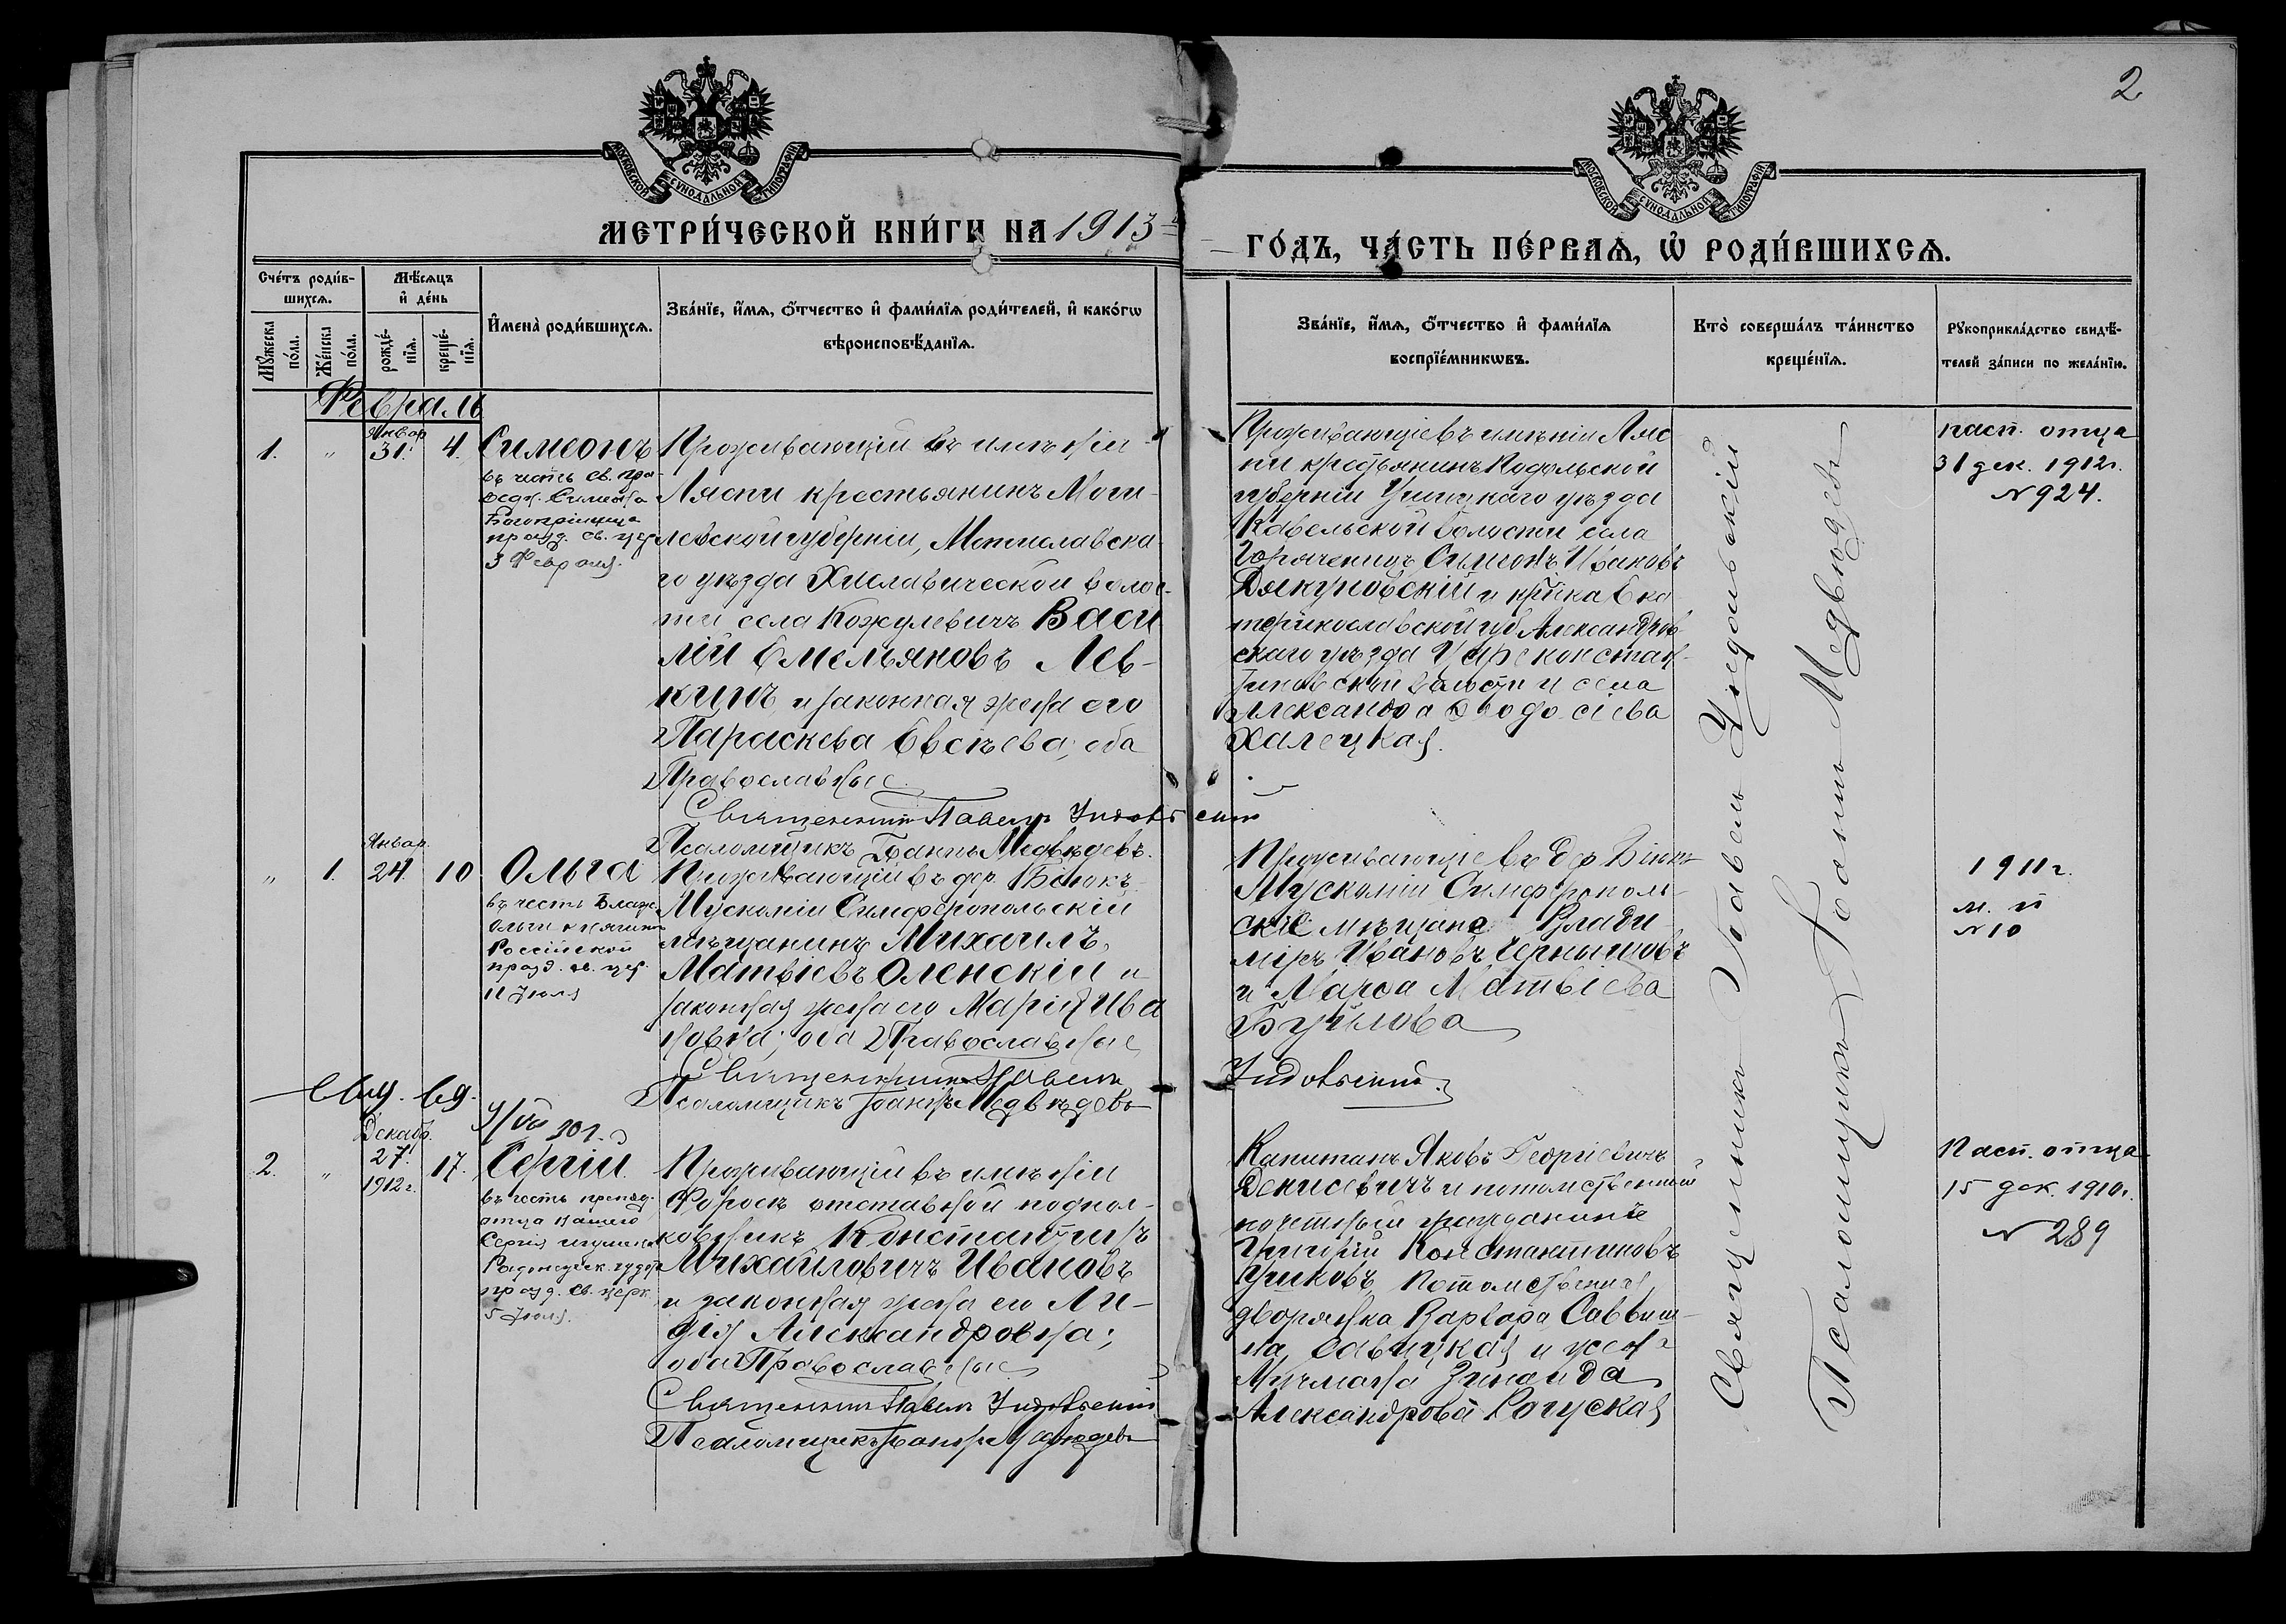 2
МОСКОВСКОЙ СѴНОДАЛЬНОЙ ТИПОГРАФІИ
МОСКОВСКОЙ СѴНОДАЛЬНОЙ ТИПОГРАФІИ
МЕТРИ́ЧЕСКОЙ КНИ́ГИ НА 1913
ГО́ДЪ, ЧА́СТЬ ПЕ́РВАѦ, Ѡ҆ РОДИ́ВШИХСѦ.
Сче́тъ роди́в-
шихсѧ.
Мꙋ́жеска по́ла.
Же́нска по́ла.
Мѣ́сѧцъ
и҆ де́нь
рожде́-нїѧ.
креще́-нїѧ.
И҆мена̀ роди́вшихсѧ.
Зва́нїе, и҆́мѧ, ѻ҆́тчество и҆ фами́лїѧ роди́телей, и҆ како́гѡ
вѣроисповѣ́данїѧ.
Зва́нїе, и҆́мѧ, ѻ҆́тчество и҆ фами́лїѧ
воспрїе́мникѡвъ.
Кто̀ соверша́лъ та́инство
креще́нїѧ.
Рꙋкоприкла́дство свидѣ́-
телей за́писи по жела́нїю.
Февраль
1. " Январ 31. 4. Симеонъ
въ честь св. пра
вед. Симеона
Богопріимца
празд. св. цер
3 Февраля.
Проживающій въ имѣніи
Ляспи крестьянинъ Моги-
левской губерніи, Мстиславска-
го уѣзда Хиславической волос-
ти села Кожулевичъ Васи
лій Емельяновъ Лев-
кинъ и законная жена его
Параскева Евсѣева; оба
Православные
Священникъ Павелъ Индовскій
Псаломщикъ Іоаннъ Медвѣдевъ.
Проживающіе въ имѣніи Ляс
пи крестьянинъ Подольской
губерніи Ушицкаго уѣзда
волости села
Симеонъ Ивановъ
и кр-ка Ека
теринославской губ Александров-
скаго уѣзда Цареконстан-
тиновской волости и села
Александра Ѳеодосіева
Халецкая.
пасп. отца
31 дек. 1912г.
№ 924.
" 1. Январ. 24. 10 Ольга
въ честь Благ.
Ольги княгини
Россійской
празд. св. цер.
11 Іюля
Проживающій въ дер. Біюкъ
Мускоміи Симферопольскій
мѣщанинъ Михаилъ
Матвіевъ Оленскій и
законная жена его Марія Ива
новна; оба Православные
Священникъ Павелъ
Индовскій.
Псаломщикъ Іоаннъ Медвѣдевъ
Проживающіе въ дер Біюкъ
Мускоміи Симферополь
скіе мѣщане Влади
міръ Ивановъ Чернышовъ
и Марѳа Матвіева
Буйлова
1911г.
м. п
№ 10
Декабр.
2. " 27. 1912г. 17. Сергій
въ честь препод.
отца нашего
Сергія игумена
Радонежск. чудот
празд. св. церк.
5 Іюля.
Проживающій въ имѣніи
Форосъ отставной подпол-
ковникъ Константинъ
Михайловичъ Ивановъ
и законная жена его Ли-
дія Александровна;
оба Православные
Священникъ Павелъ Индовскій
Псаломщикъ Іоаннъ Медвѣдевъ
Капитанъ Яковъ Георгіевичъ
Денисевичъ и потомственный
почетный гражданинъ
Григорій Константиновъ
Ушковъ, потомственная
дворянка Варвара Саввиш-
на Савицкая и жена
Мичмана Зинаида
Александрова Рогуская
Пасп. отца
15 дек. 1910г.
№ 289
Священникъ Павелъ Индовскій
Псаломщикъ Іоаннъ Медвѣдевъ